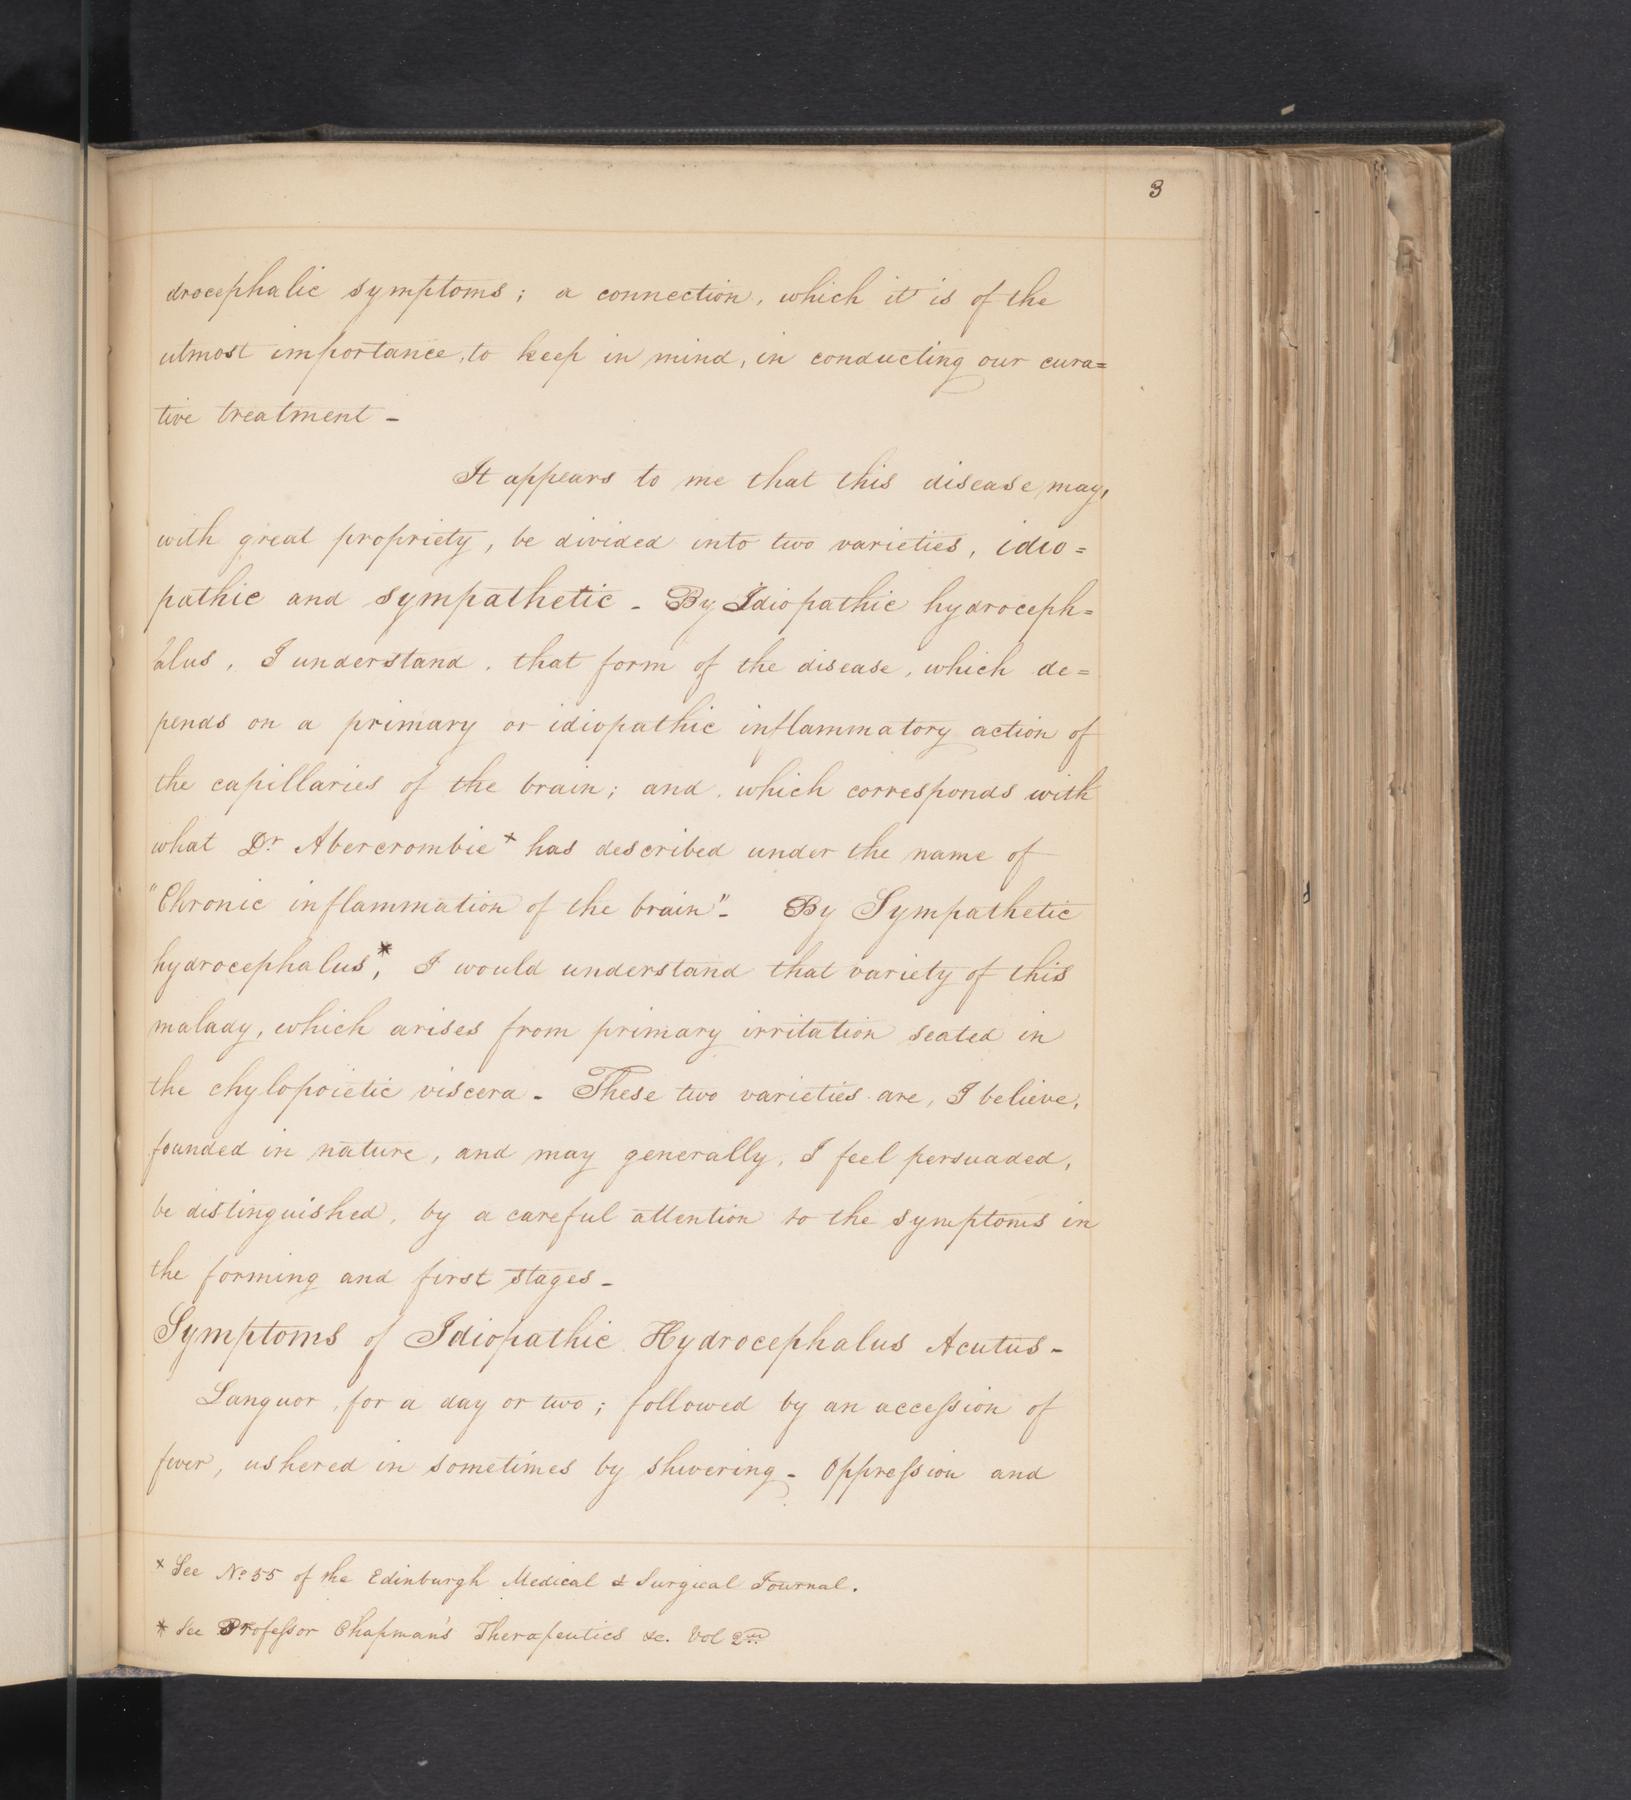 3
drocephalic symptoms; a connection, which it is of the
utmost importance, to keep in mind, in conducting our cura=
tive treatment -
It appears to me that this disease may,
with great propriety, be divided into two varieties, idio=
pathic and sympathetic - By Idiopathic hydroceph=
alus, I understand, that form of the disease, which de=
pends on a primary or idiopathic inflammatory action of
the capillaries of the brain; and, which corresponds with
what Dr Abercrombie x has described under the name of
"Chronic inflammation of the brain" - By Sympathetic
hydrocephalus*, I would understand that variety of this
malady, which arises from primary irritation seated in
the chylopoietic viscera - These two varieties are, I believe,
founded in nature, and may generally, I feel persuaded,
be distinguished, by a careful attention to the symptoms in
the forming and first stages -
Symptoms of Idiopathic Hydrocephalus Acutus -
Languor, for a day or two; followed by an accession of
fever, ushered in sometimes by shivering - Oppression and
x See No 55 of the Edinburgh Medical & Surgical Journal.
* See Professor Chapman's Therapeutics &c. Vol 2nd